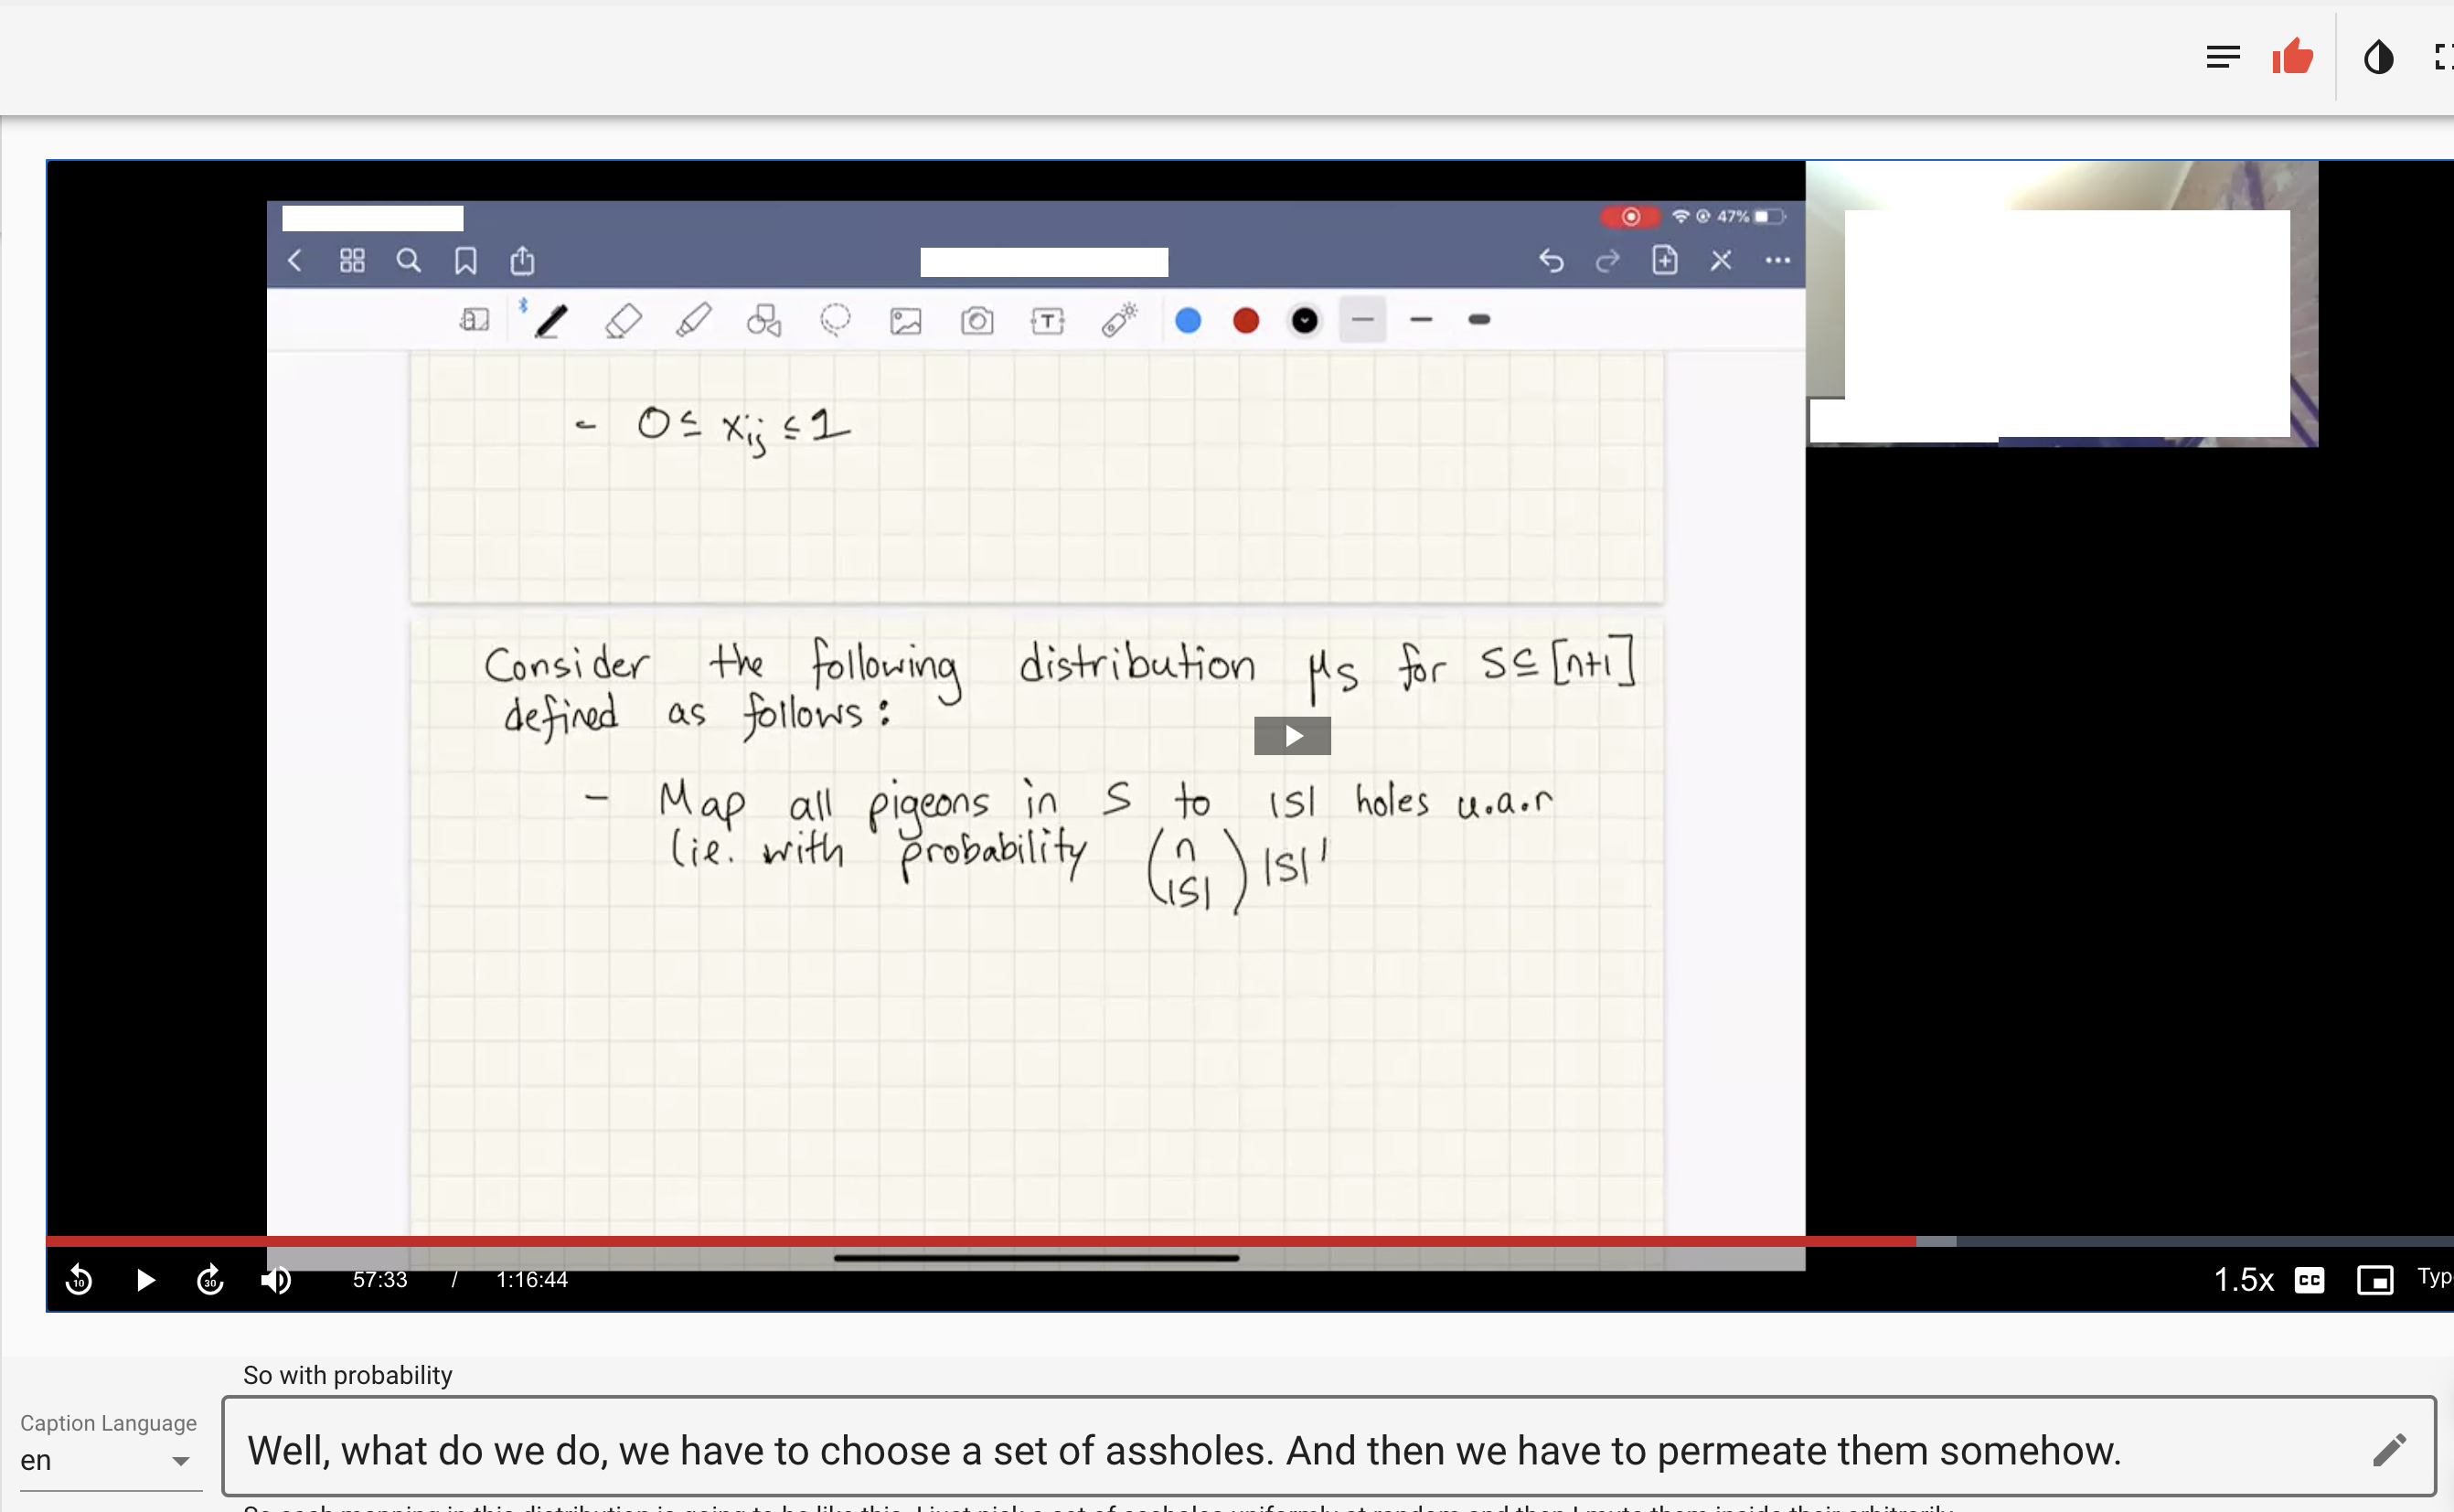 47%
T
- 0 ≤ xij ≤ 1
Consider the following distribution μs for S ⊆ [n+1]
defined as follows:
- Map all pigeons in S to |S| holes u.a.r
(ie. with probability (n |S|) |S|'
10
30
57:33 / 1:16:44
1.5x
CC
Typ
So with probability
Caption Language
en
Well, what do we do, we have to choose a set of assholes. And then we have to permeate them somehow.